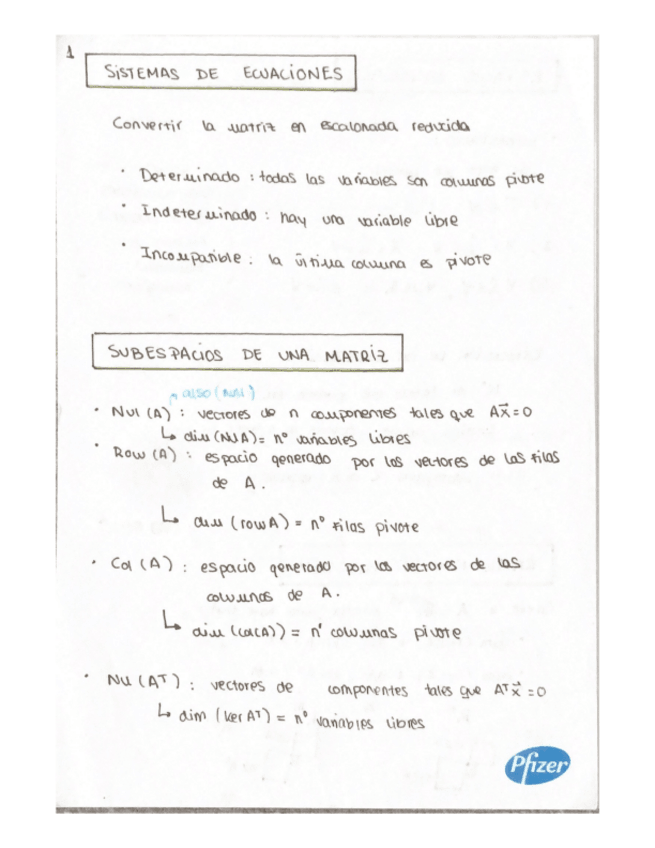 1
SISTEMAS DE ECUACIONES
Convertir la matriz en escalonada reducida
· Determinado : todas las variables son columnas pivote
· Indeterminado : hay una variable libre
· Incompatible : la última columna es pivote
SUBESPACIOS DE UNA MATRIZ
also (Nul)
· Nul (A) : vectores de n componentes tales que Ax⃗ = 0
↳ dim (NulA) = nº variables libres
· Row (A) : espacio generado por los vectores de las filas
de A.
↳ dim (row A) = nº filas pivote
· Col (A) : espacio generado por los vectores de las
columnas de A.
↳ dim (col(A)) = nº columnas pivote
· Nu (Aᵀ) : vectores de componentes tales que Aᵀx⃗ = 0
↳ dim (ker Aᵀ) = nº variables libres
Pfizer